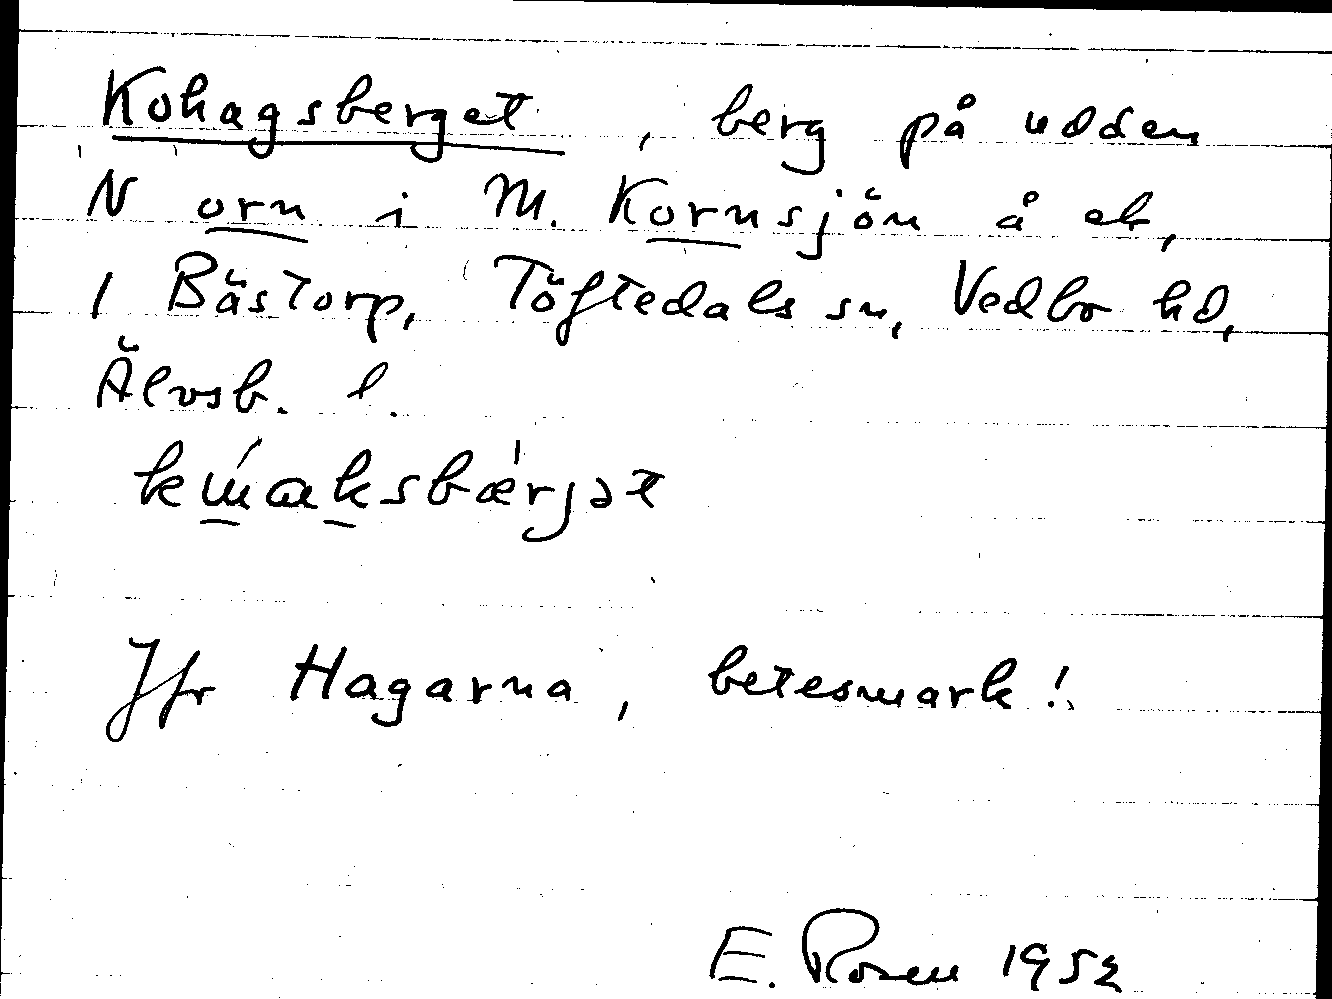 Kohagsberget, berg på udden
N orn i M. Kornsjön å ek,
1 Bästorp, Töftedals sn, Vedbo hd,
Älvsb. l.
Jfr Hagarna, betesmark!
E. Rosen 1952